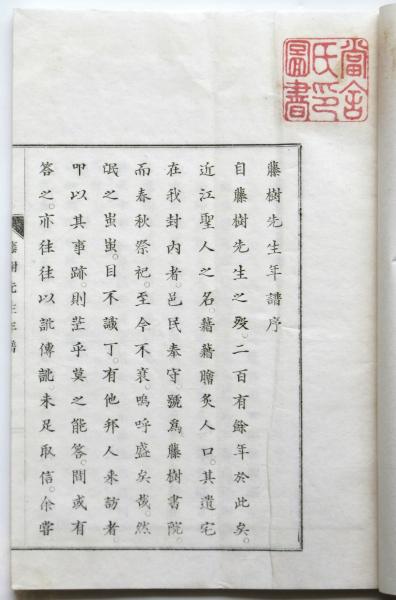 藤樹先生年譜序
自藤樹先生之歿。二百有餘年於此矣。
近江聖人之名。藉藉膾炙人口。其遺宅
在我封內者。邑民奉守。號爲藤樹書院。
而春秋祭祀。至今不衰。嗚呼盛矣哉。然
氓之蚩蚩。目不識丁。有他邦人来訪者。
叩以其事跡。則茫乎莫之能答。間或有
答之。亦往往以訛傳訛。未足取信。余嘗
藤樹先生年譜